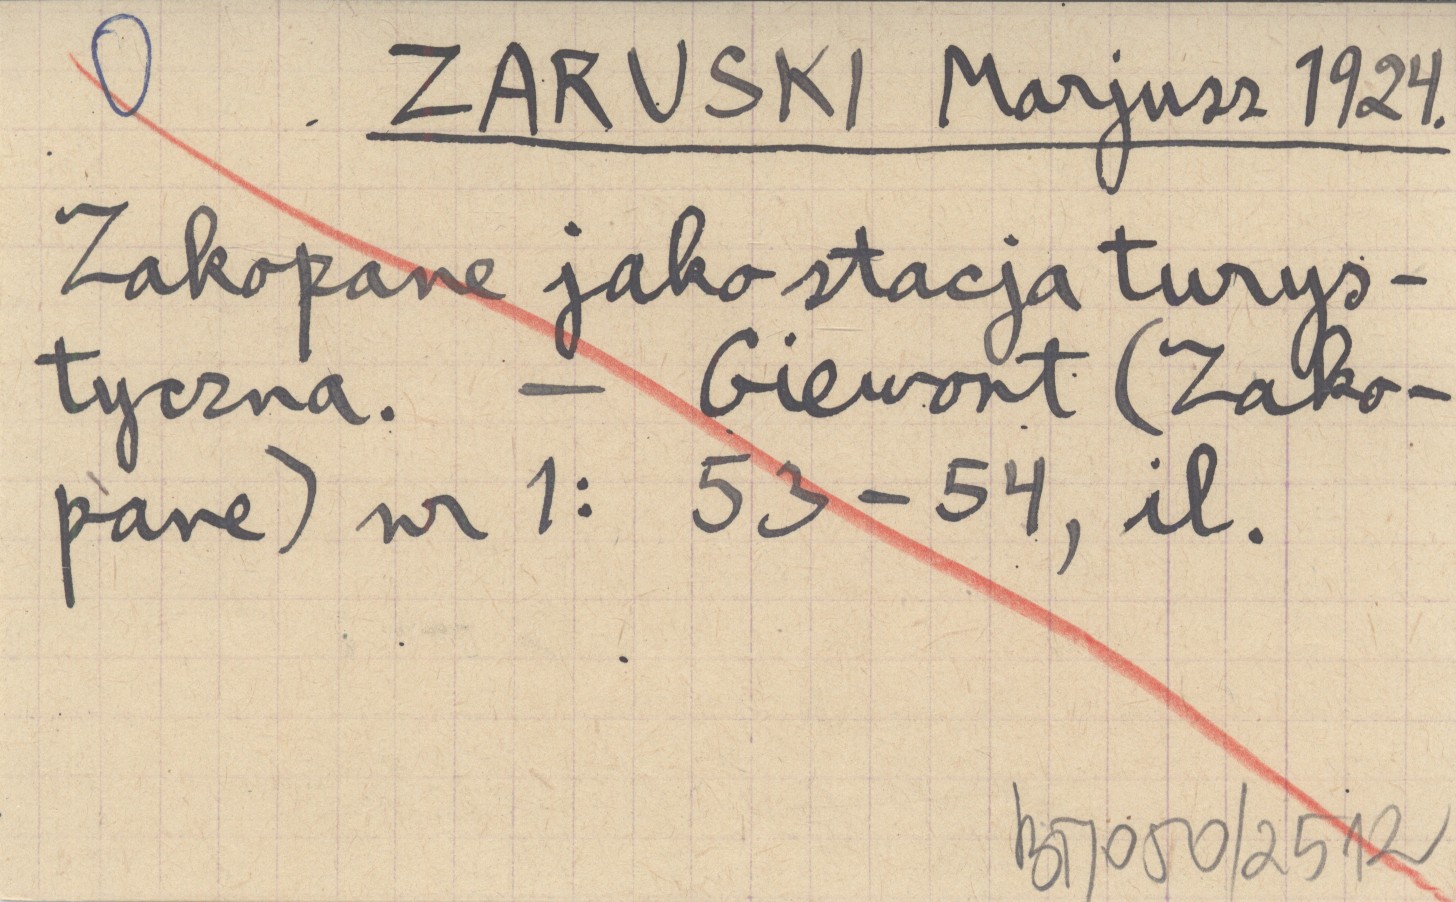 ZARUSKI Marjusz 1924.
Zakopane jako stacja turys-
tyczna. — Giewont (Zako-
pane) nr 1: 53-54, il.
050/2512